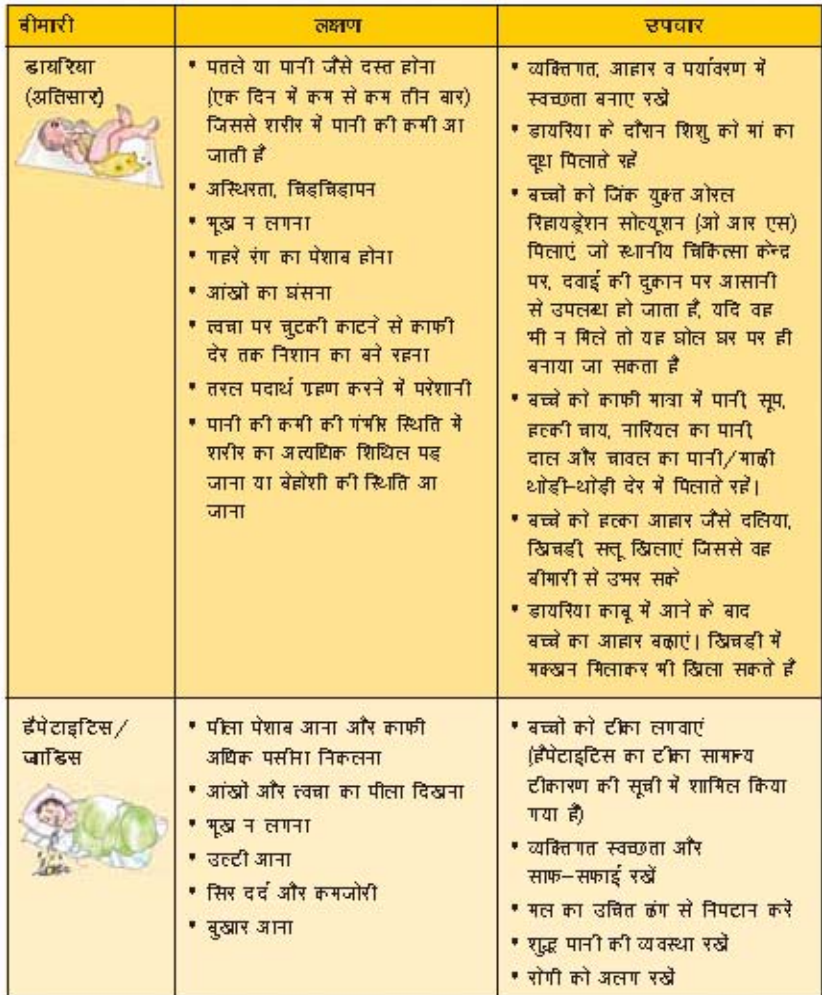 बीमारी
लक्षण
उपचार
डायरिया
(अतिसार)
• पतले या पानी जैसे दस्त होना
(एक दिन में कम से कम तीन बार)
जिससे शरीर में पानी की कमी आ
जाती है
• अस्थिरता, चिड़चिड़ापन
• भूख न लगना
• गहरे रंग का पेशाब होना
• आंखों का घंसना
• त्वचा पर चुटकी काटने से काफी
देर तक निशान का बने रहना
• तरल पदार्थ ग्रहण करने में परेशानी
• पानी की कमी की गंभीर स्थिति में
शरीर का अत्यधिक शिथिल पड़
जाना या बेहोशी की स्थिति आ
जाना
• व्यक्तिगत, आहार व पर्यावरण में
स्वच्छता बनाए रखें
• डायरिया के दौरान शिशु को मां का
दूध पिलाते रहें
• बच्चों को जिंक युक्त ओरल
रिहायड्रेशन सोल्यूशन (ओ आर एस)
पिलाएं, जो स्थानीय चिकित्सा केन्द्र
पर, दवाई की दुकान पर आसानी
से उपलब्ध हो जाता है, यदि वह
भी न मिले तो यह घोल घर पर ही
बनाया जा सकता है
• बच्चे को काफी मात्रा में पानी, सूप,
हल्की चाय, नारियल का पानी,
दाल और चावल का पानी/माढ़ी
थोड़ी-थोड़ी देर में पिलाते रहें।
• बच्चे को हल्का आहार जैसे दलिया,
खिचड़ी, सत्तू खिलाएं जिससे वह
बीमारी से उभर सके
• डायरिया काबू में आने के बाद
बच्चे का आहार बढ़ाएं। खिचड़ी में
मक्खन मिलाकर भी खिला सकते हैं
हैपेटाइटिस/
जांडिस
• पीला पेशाब आना और काफी
अधिक पसीना निकलना
• आंखों और त्वचा का पीला दिखना
• भूख न लगना
• उल्टी आना
• सिर दर्द और कमजोरी
• बुखार आना
• बच्चों को टीका लगवाएं
(हैपेटाइटिस का टीका सामान्य
टीकारण की सूची में शामिल किया
गया है)
• व्यक्तिगत स्वच्छता और
साफ-सफाई रखें
• मल का उचित ढंग से निपटान करें
• शुद्ध पानी की व्यवस्था रखें
• रोगी को अलग रखें